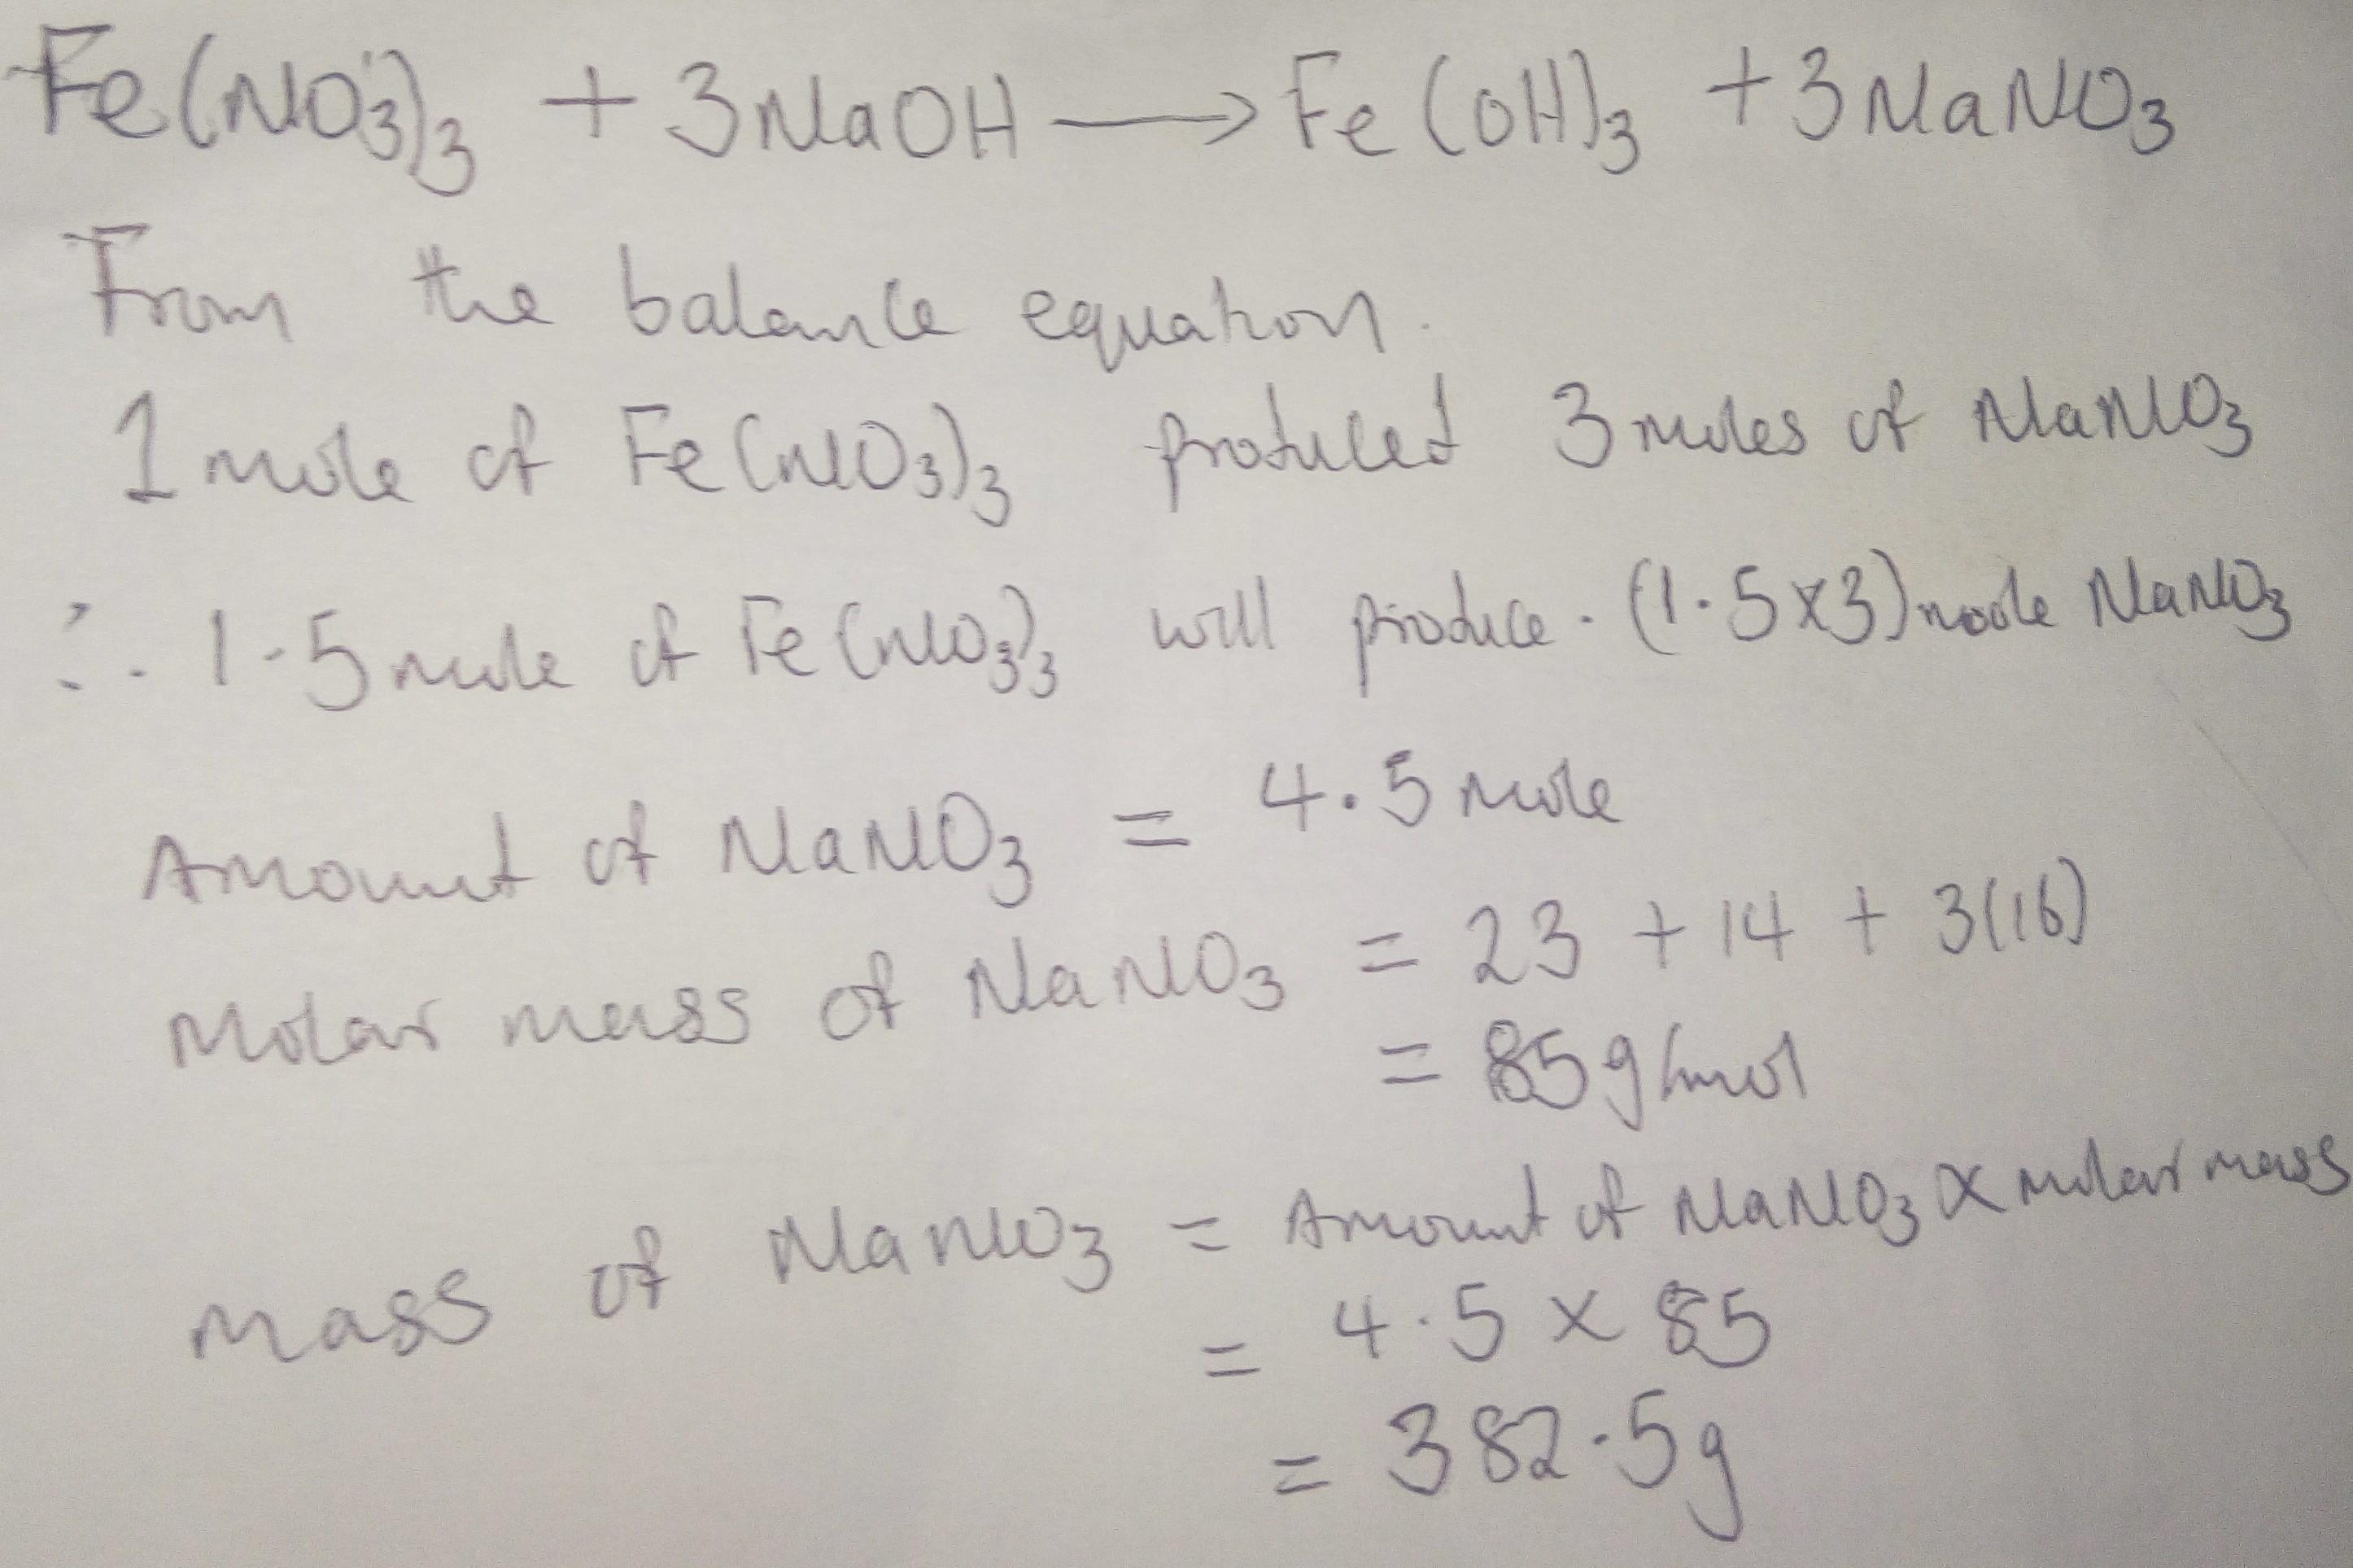 Fe(NO3)3 + 3NaOH → Fe(OH)3 + 3NaNO3
From the balance equation.
1 mole of Fe(NO3)3 produced 3 moles of NaNO3
∴ 1.5 mole of Fe(NO3)3 will produce. (1.5 x 3) mole NaNO3
Amount of NaNO3 = 4.5 mole
Molar mass of NaNO3 = 23 + 14 + 3(16)
= 85 g/mol
mass of NaNO3 = Amount of NaNO3 x molar mass
= 4.5 x 85
= 382.5g